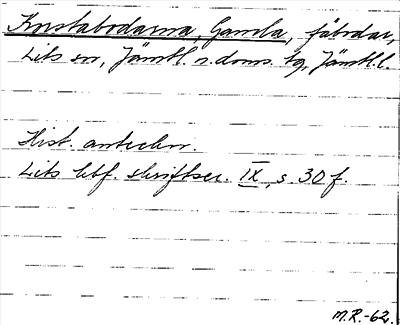 Korstabodarna, Gamla, fäbodar,
Lits sn, Jämtl. n. doms. tg, Jämtl. l.
Hist. anteckn.
Lits hbf. skriftser. IX, s. 30 f.
M.R.-62.